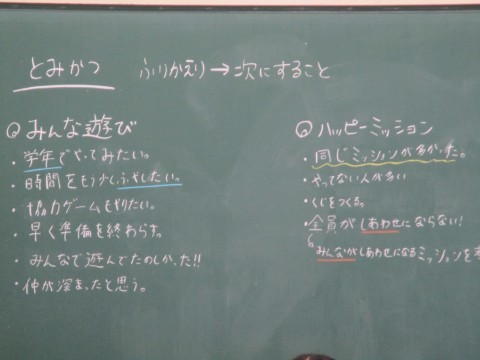 とみかつ ふりかえり→次にすること
◎みんな遊び
・学年でやってみたい。
・時間をもう少しふやしたい。
・協力ゲームもやりたい。
・早く準備を終わらす。
・みんなで遊んでたのしかった!!
・仲が深まったと思う。
◎ハッピーミッション
・同じミッションが多かった。
・やってない人が多い
・くじをつくる。
・全員がしあわせにならない!
みんながしあわせになるミッションを